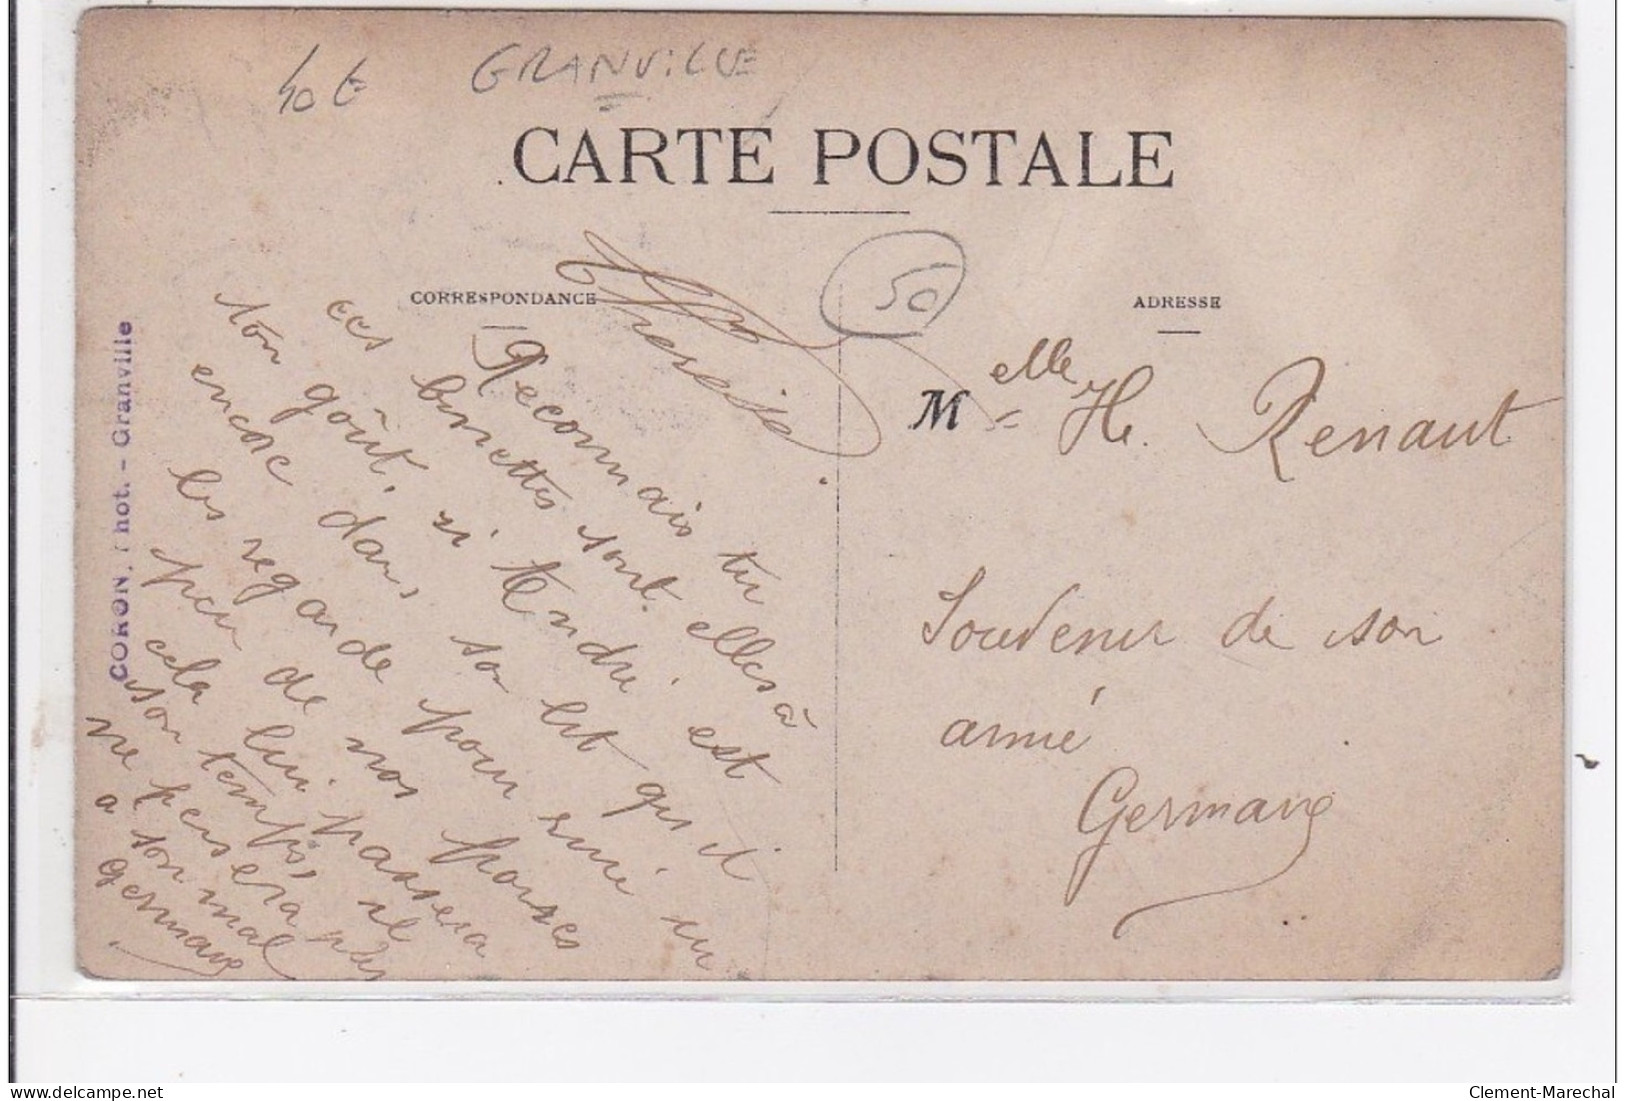 40 €
GRANVILLE
CARTE POSTALE
CORRESPONDANCE
ADRESSE
50
CORON, Phot. - Granville
Therese.
Reconnais tu
ces binettes sont-elles à
ton goût, si André est
encore dans son lit qu'il
les regarde pour rire un
peu de nos poires
cela lui passera
son temps, il
ne pensera pas
a son mal
Germaine
Melle H. Renaut
Souvenir de son
amie
Germaine
delcampe.net
Clement-Marechal